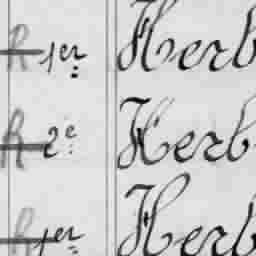 R 1er Herb
R 2e Herb
R 1er Herb